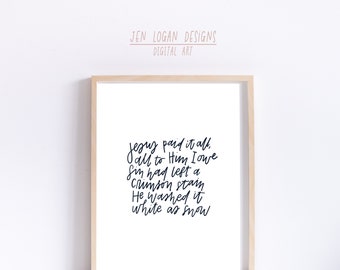 JEN LOGAN DESIGNS
DIGITAL ART
Jesus paid it all,
all to Him I owe
Sin had left a
crimson stain
He washed it
white as snow